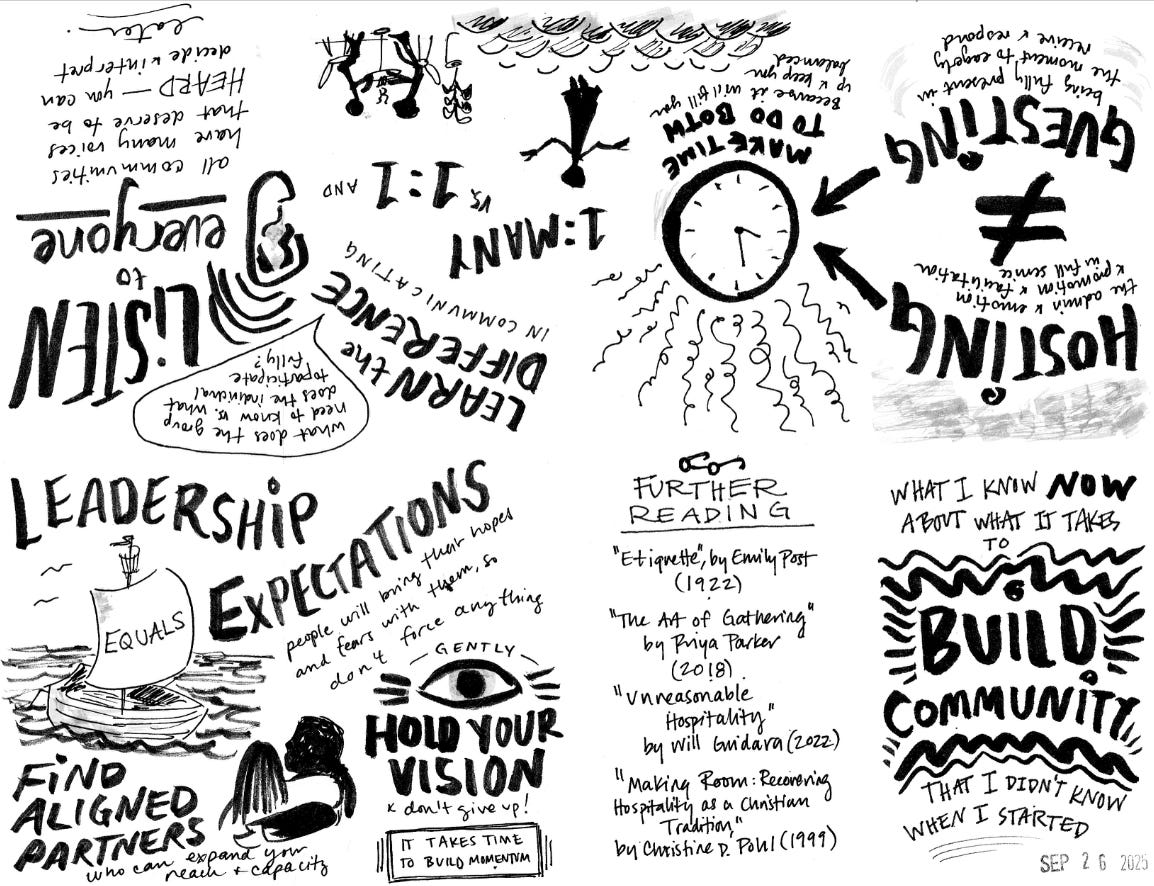 HOSTING
the admin & emotion
& promotion & facilitation
in full service
≠
GUESTING
being fully present in
the moment to eagerly
receive & respond
MAKE TIME
TO DO BOTH
Because it will fill you
up & keep you
balanced
LEARN the
DIFFERENCE
IN COMMUNICATING
1:MANY
VS. 1:1
AND
what does the group
need to know vs. what
does the individual
to participate
fully?
LISTEN
to
everyone
all communities
have many voices
that deserve to be
HEARD — you can
decide & interpret
later.
LEADERSHIP
EQUALS
EXPECTATIONS
people will bring their hopes
and fears with them, so
don't force anything
FIND
ALIGNED
PARTNERS
who can expand your
reach + capacity
GENTLY
HOLD YOUR
VISION
& don't give up!
IT TAKES TIME
TO BUILD MOMENTUM
FURTHER
READING
"Etiquette", by Emily Post
(1922)
"The Art of Gathering"
by Priya Parker
(2018)
"Unreasonable
Hospitality"
by Will Guidara (2022)
"Making Room: Recovering
Hospitality as a Christian
Tradition,"
by Christine D. Pohl (1999)
WHAT I KNOW NOW
ABOUT WHAT IT TAKES
TO
BUILD
COMMUNITY
THAT I DIDN'T KNOW
WHEN I STARTED
SEP 26 2025